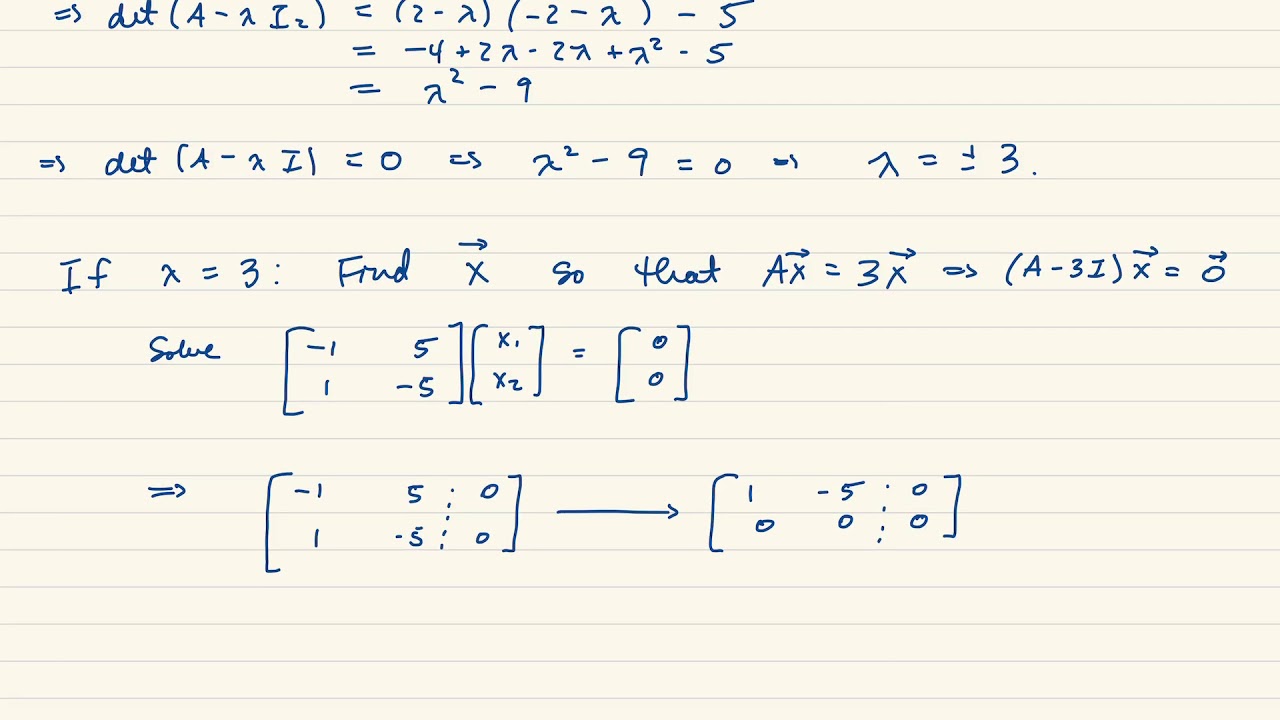 ⇒ det(A - λ I₂) = (2 - λ)(-2 - λ) - 5
= -4 + 2λ - 2λ + λ² - 5
= λ² - 9
⇒ det(A - λ I) = 0 ⇒ λ² - 9 = 0 ⇒ λ = ± 3.
If λ = 3: Find x⃗ so that Ax⃗ = 3x⃗ ⇒ (A - 3I)x⃗ = 0⃗
Solve [-1 5; 1 -5] [x₁; x₂] = [0; 0]
⇒ [-1 5 ⋮ 0; 1 -5 ⋮ 0] ⟶ [1 -5 ⋮ 0; 0 0 ⋮ 0]